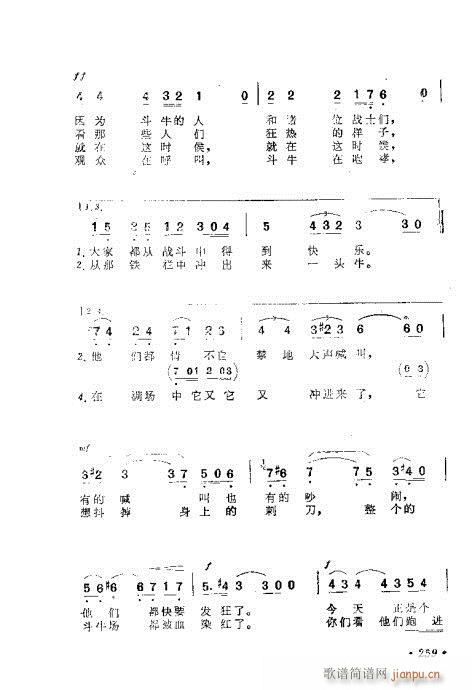 ff
4 4 4 3 2 1 0 2 2 2 1 7 6 0
因为 斗牛的人 和诸 位战士们，
看那 些人们 狂热 的样子，
就在 这时候， 就在 这时候，
观众 在呼叫， 斗牛 在咆哮，
1.3.
1 5 2 5 1 2 1 2 3 0 4 5 4 3 2 3 3 0
1.大家 都从 战斗 中 得 到 快 乐。
2.从那 铁 栏中 冲 出 来 一 头 牛。
2.4.
7 4 2 4 7 6 2 6 4 4 3 #2 3 6 6 0
2.他 们都 情 不自 禁地 大声喊叫，
(7 0 1 2 0 3) (0 3)
4.在 满场 中它又它 又 冲进来了， 它
mf
3 #2 3 3 7 5 0 6 7 #6 7 7 5 3 #4 0
有的 喊 叫也 有的 吵 闹，
想抖 掉 身上的 刺 刀， 整个的
f f
5 6 #6 6 7 1 7 5. #4 3 0 0 4 3 4 4 3 5 4
他 们 都快要 发狂了。 今 天 正是个
斗牛场 都被血 染红了。 你们看 他们跑 进
• 259 •
歌谱简谱网 jianpu.cn